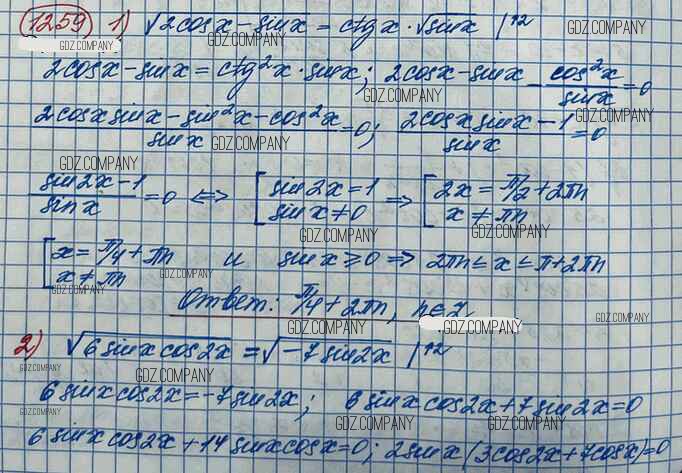 1259 1) √2cosx - sinx = ctgx · √sinx |^2
GDZ.COMPANY GDZ.COMPANY GDZ.COMPANY
2cosx - sinx = ctg²x · sinx; 2cosx - sinx - cos²x/sinx = 0
GDZ.COMPANY GDZ.COMPANY
(2cosx sinx - sin²x - cos²x)/sinx = 0; (2cosx sinx - 1)/sinx = 0
GDZ.COMPANY
GDZ.COMPANY
(sin2x - 1)/sinx = 0 <=> [sin2x = 1 sinx ≠ 0 => [2x = π/2 + 2πn x ≠ πn
GDZ.COMPANY GDZ.COMPANY
GDZ.COMPANY
[x = π/4 + πn x ≠ πn и sinx ≥ 0 => 2πn ≤ x ≤ π + 2πn
GDZ.COMPANY GDZ.COMPANY
Ответ: π/4 + 2πn, n∈Z
GDZ.COMPANY GDZ.COMPANY
2) √6sinxcos2x = √-7sin2x |^2
GDZ.COMPANY GDZ.COMPANY GDZ.COMPANY
6sinxcos2x = -7sin2x; 6sinxcos2x + 7sin2x = 0
GDZ.COMPANY GDZ.COMPANY GDZ.COMPANY
6sinxcos2x + 14sinxcosx = 0; 2sinx(3cos2x + 7cosx) = 0
GDZ.COMPANY